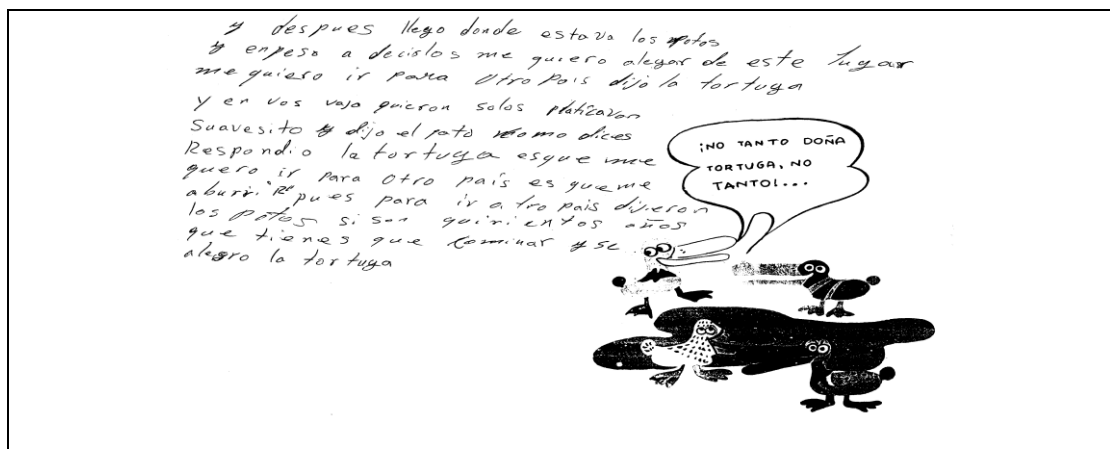 y despues llego donde estava los patos
y enpeso a decirlos me quiero alegar de este lugar
me quiero ir para otro pais dijo la tortuga
y en vos vaja quieron solos platicavan
Suavesito y dijo el pato como dices
Respondio la tortuga esque me
quero ir para otro país es que me
aburri pues para ir a tro pais dijieron
los patos si son quinientos años
que tienes que caminar y se
alegro la tortuga
¡NO TANTO DOÑA
TORTUGA, NO
TANTO!...